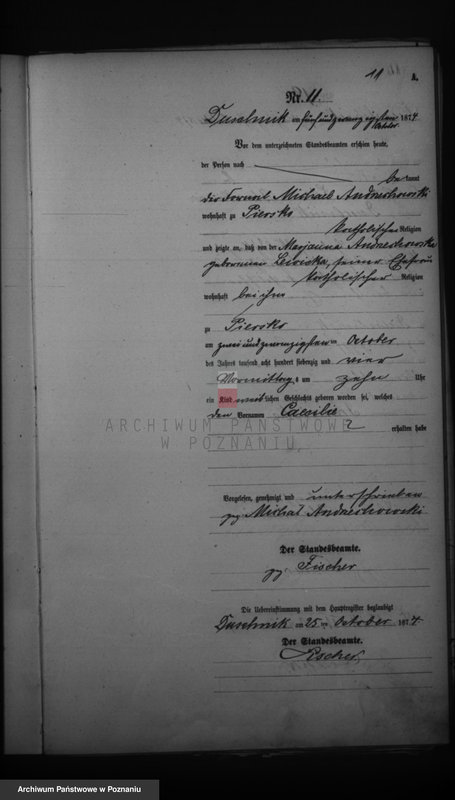 11
A.
Nr. 11.
Duschnik am fünfundzwanzigsten
October 1874
Vor dem unterzeichneten Standesbeamten erschien heute,
der Person nach
be kannt
der Fornal Michael Andrechowski
wohnhaft zu Piersko
katholischer Religion
und zeigte an, daß von der Marjanna Andrechowska
geborenen Lewicka, seiner Ehefrau
katholischer Religion
wohnhaft bei ihm
zu Piersko
am zweiundzwanzigsten October
des Jahres tausend acht hundert siebenzig und vier
Vormittags um zehn Uhr
ein Kind weiblichen Geschlechts geboren worden sei, welches
den Vornamen Caecilie
erhalten habe
ARCHIWUM PAŃSTWOWE
W POZNANIU,
Vorgelesen, genehmigt und unterschrieben
gz. Michał Andrechowski
Der Standesbeamte.
gz. Fischer
Die Uebereinstimmung mit dem Hauptregister beglaubigt
Duschnik am 25 ten October 1874
Der Standesbeamte.
Fischer
Archiwum Państwowe w Poznaniu